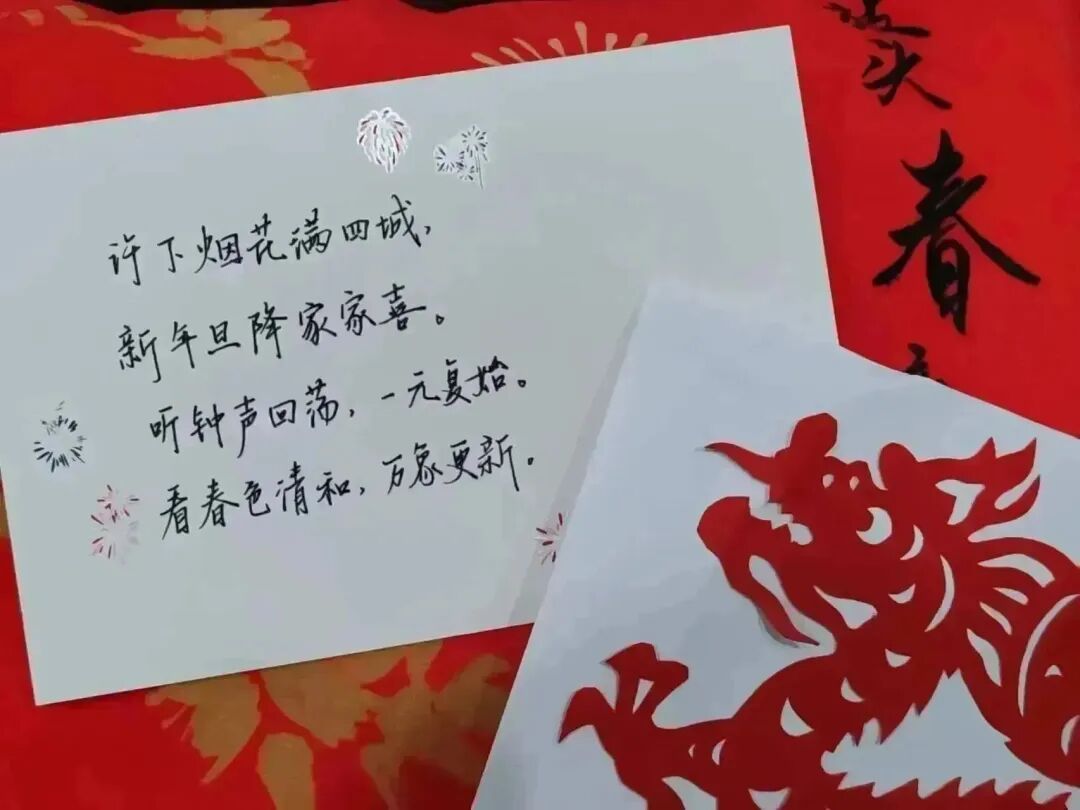 许下烟花满四城，
新年旦降家家喜。
听钟声回荡，一元复始。
看春色清和，万象更新。
春